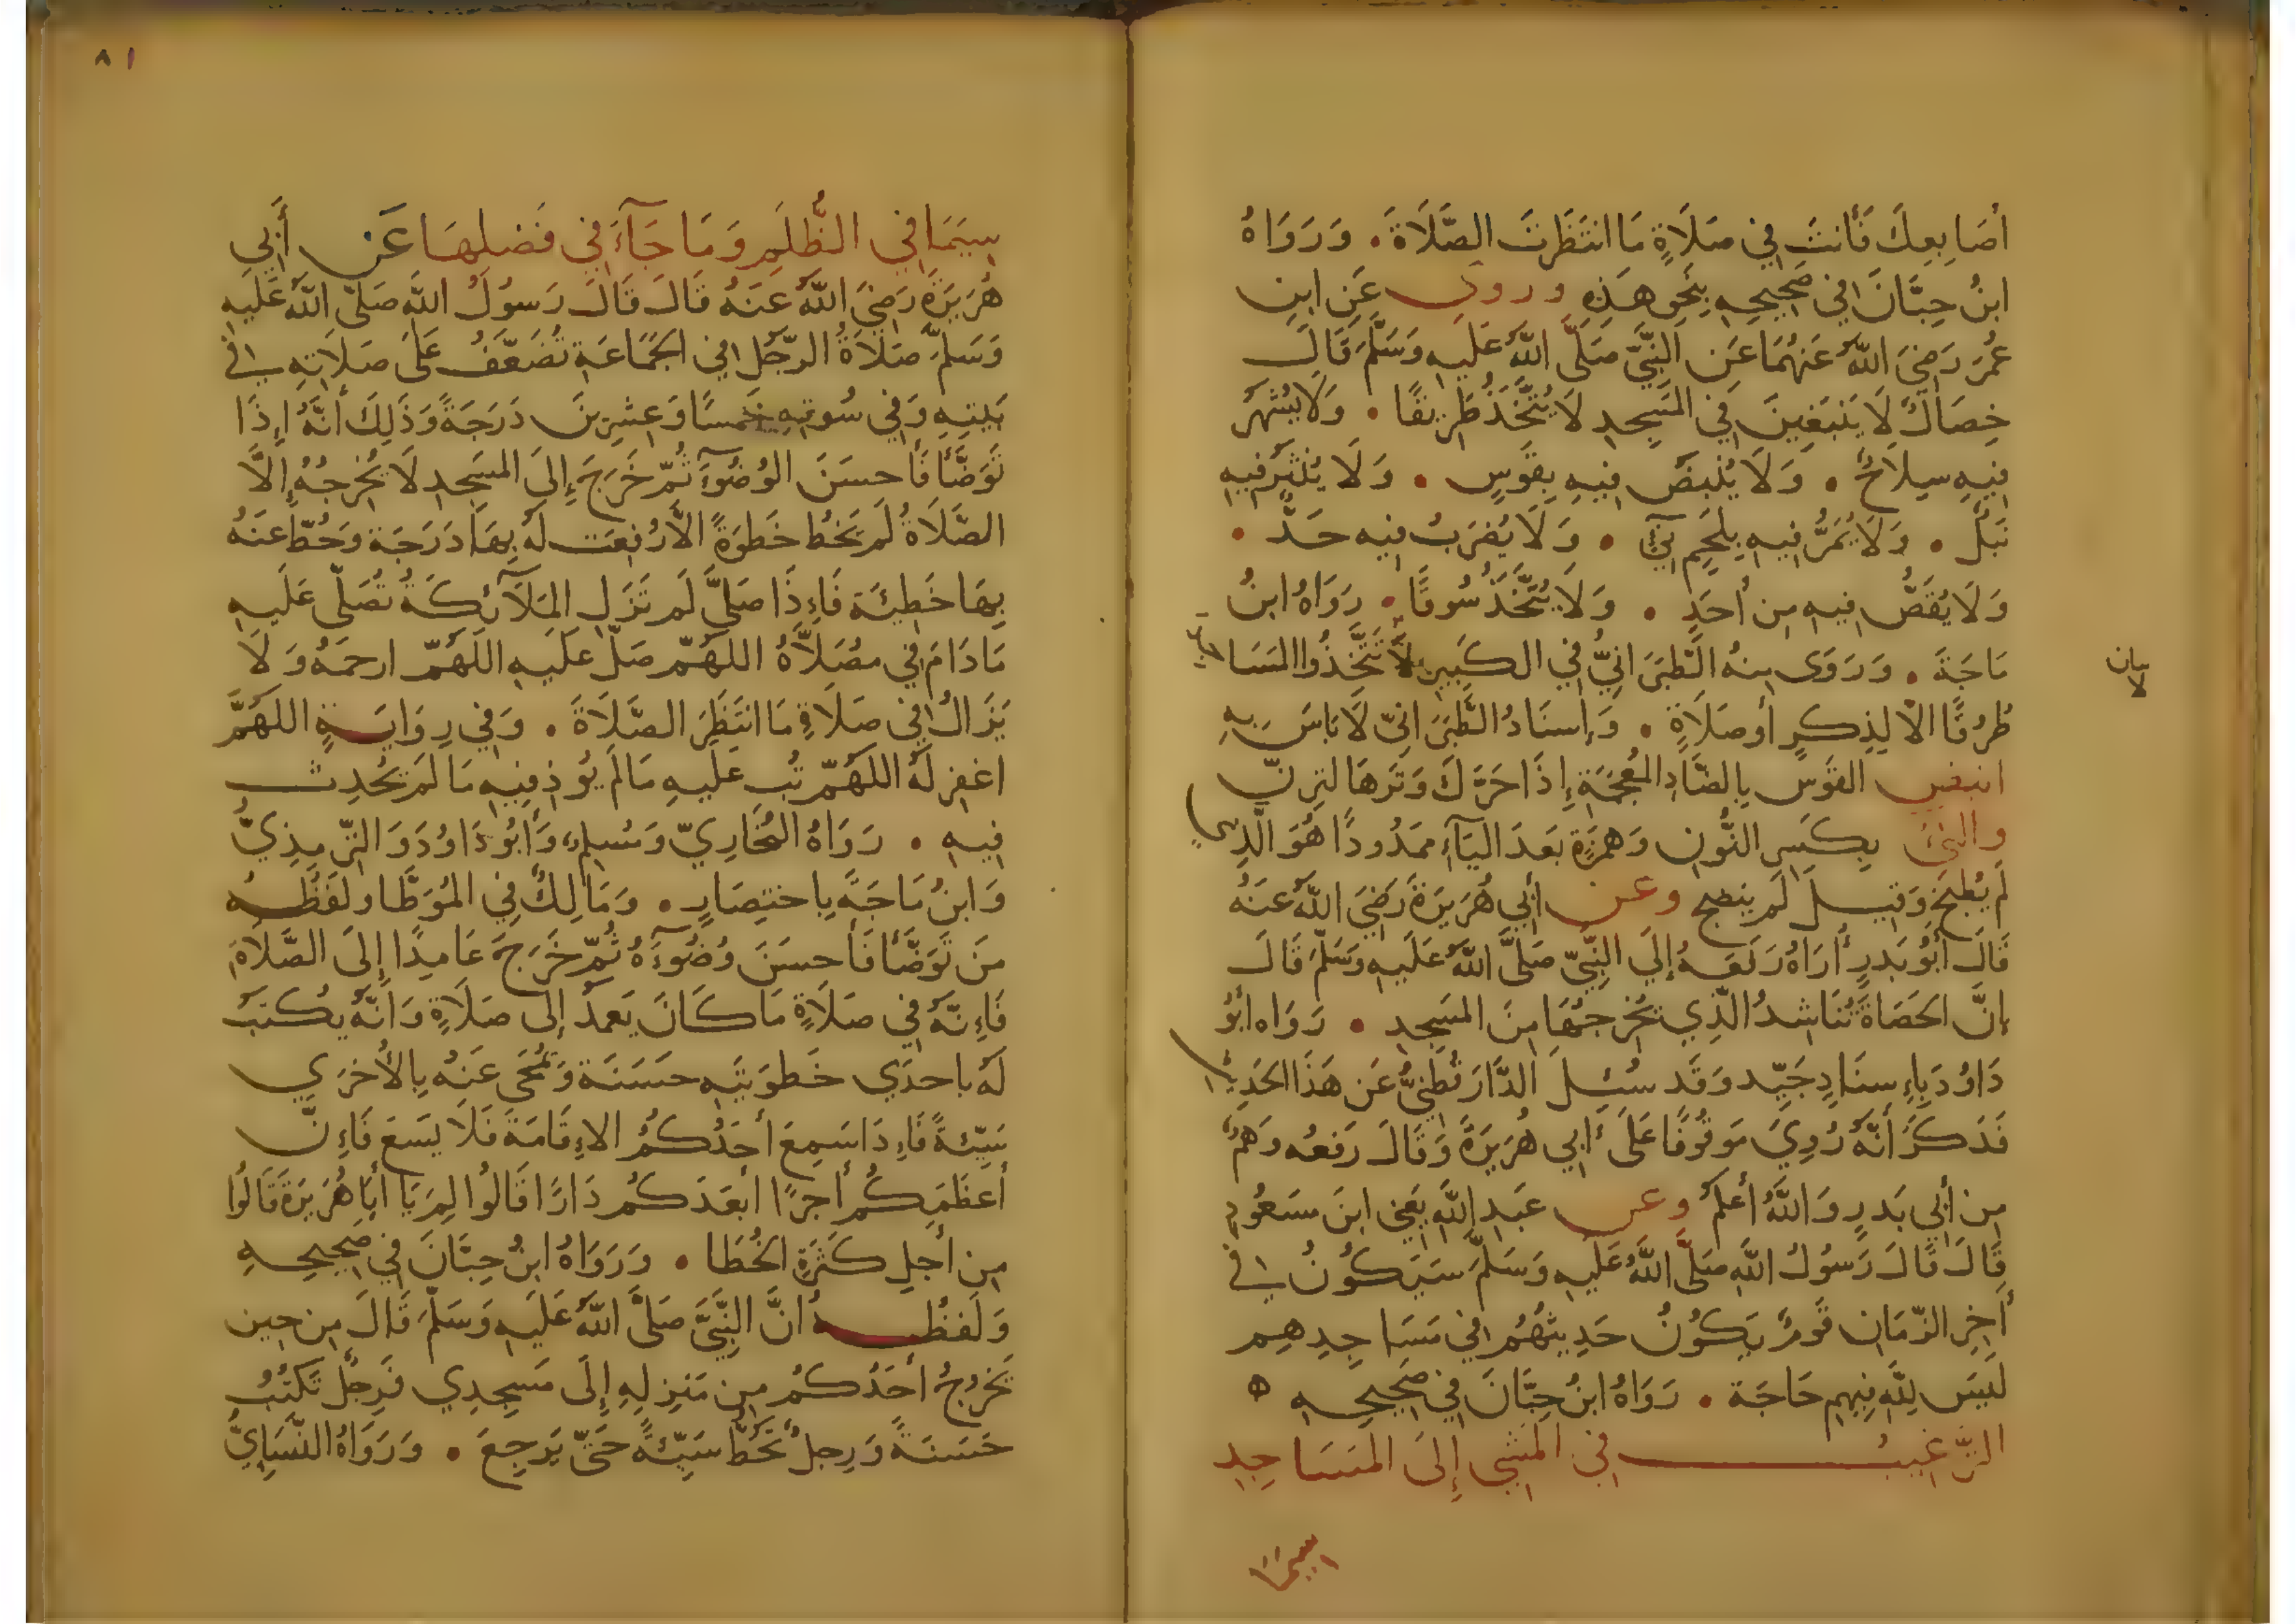 أصَابِعِكَ فَأنتَ فِي صَلَاةٍ مَا انتَظَرتَ الصَّلَاةَ . وَرَوَاهُ
ابنُ حِبَّانَ فِي صَحِيحِهِ بِنَحوِ هَذِهِ وروي عَنِ ابنِ
عُمَرَ رَضِيَ اللَّهُ عَنهُمَا عَنِ النَّبِيِّ صَلَّى اللَّهُ عَلَيهِ وَسَلَّمَ قَالَ
خِصَالٌ لَا يَنبَغِينَ فِي المَسجِدِ لَا يُتَّخَذُ طَرِيقًا . وَلَا يُشهَرُ
فِيهِ سِلَاحٌ . وَلَا يُنبَضُ فِيهِ بِقَوسٍ . وَلَا يُنثَرُ فِيهِ
نَبلٌ . وَلَا يُمَرُّ فِيهِ بِلَحمٍ نِيٍّ . وَلَا يُضرَبُ فِيهِ حَدٌّ .
وَلَا يُقَصُّ فِيهِ مِن أَحَدٍ . وَلَا يُتَّخَذُ سُوقًا . رَوَاهُ ابنُ
مَاجَةَ . وَرَوَى مِنهُ الطَّبَرَانِيُّ فِي الكَبِيرِ لَا تَتَّخِذُوا المَسَاجِدَ
طُرُقًا الَّا لِذِكرٍ أَو صَلَاةٍ . وَإِسنَادُ الطَّبَرَانِيِّ لَا بَاسَ بِهِ
انبض القَوسَ بِالضَّادِ المُعجَمَةِ إِذَا حَرَّكَ وَتَرَهَا لِتَرِنَّ
والنئ بِكَسرِ النُّونِ وَهَمزَةٍ بَعدَ اليَآءِ مَمدُودًا هُوَ الَّذِي
لَم يُطبَخ وَقِيلَ لَم يَنضج وعن أَبِي هُرَيرَةَ رَضِيَ اللَّهُ عَنهُ
قَالَ أَبُو بَدرٍ أُرَاهُ رَفَعَهُ إِلَى النَّبِيِّ صَلَّى اللَّهُ عَلَيهِ وَسَلَّمَ قَالَ
إِنَّ الحَصَاةَ تُنَاشِدُ الَّذِي يُخرِجُهَا مِنَ المَسجِدِ . رَوَاه أَبُو
دَاوُدَ بِإِسنَادٍ جَيِّد وَقَد سُئِلَ الدَّارَقُطنِيُّ عَن هَذَا الحَدِيثِ
فَذَكَرَ أَنَّهُ رُوِيَ مَوقُوفًا عَلَى أَبِي هُرَيرَةَ وَقَالَ رَفعُه وَهمٌ
مِن أَبِي بَدرٍ وَاللَّهُ أَعلَمُ وعن عَبدِ اللَّهِ يَعنِي ابنَ مَسعُودٍ
قَالَ قَالَ رَسُولُ اللَّهِ صَلَّى اللَّهُ عَلَيهِ وَسَلَّمَ سَيَكُونُ فِي
أَخِرِ الزَّمَانِ قَومٌ يَكُونُ حَدِيثُهُم فِي مَسَاجِدِهِم
لَيسَ لِلَّهِ فِيهِم حَاجَة . رَوَاهُ ابنُ حِبَّانَ فِي صَحِيحِهِ ه
التَّرغِيبُ فِي المَشيِ إِلَى المَسَاجِدِ
٨١
سِيَمَا فِي الظُّلَمِ وَمَا جَآءَ فِي فَضلِهَا عَن أَبِي
هُرَيرَةَ رَضِيَ اللَّهُ عَنهُ قَالَ قَالَ رَسُولُ اللَّهِ صَلَّى اللَّهُ عَلَيهِ
وَسَلَّمَ صَلَاةُ الرَّجُلِ فِي الجَمَاعَةِ تُضَعَّفُ عَلَى صَلَاتِهِ فِي
بَيتِهِ وَفِي سُوقِهِ خَمسًا وَعِشرِينَ دَرَجَةً وَذَلِكَ أَنَّهُ إِذَا
تَوَضَّأَ فَأَحسَنَ الوُضُوءَ ثُمَّ خَرَجَ إِلَى المَسجِدِ لَا يُخرِجُهُ إِلَّا
الصَّلَاةُ لَم يَخطُ خَطوَةً الَّا رُفِعَت لَهُ بِهَا دَرَجَة وَحُطَّ عَنهُ
بِهَا خَطِيئَة فَإِذَا صَلَّى لَم تَزَلِ المَلَآئِكَةُ تُصَلِّي عَلَيهِ
مَا دَامَ فِي مُصَلَّاهُ اللَّهُمَّ صَلِّ عَلَيهِ اللَّهُمَّ ارحَمهُ وَلَا
يَزَالُ فِي صَلَاةٍ مَا انتَظَرَ الصَّلَاةَ . وَفِي رِوَايَةٍ اللَّهُمَّ
اغفِر لَهُ اللَّهُمَّ تُب عَلَيهِ مَا لَم يُوذِ فِيهِ مَا لَم يُحدِث
فِيهِ . رَوَاهُ البُخَارِيّ وَمُسلِم وَأَبُو دَاوُدَ وَالتِّرمِذِيُّ
وَابنُ مَاجَةَ بِاختِصَارٍ . وَمَالِكٌ فِي المُوَطَّا ولَفظُهُ
مَن تَوَضَّأَ فَأَحسَنَ وُضُوءَهُ ثُمَّ خَرَجَ عَامِدًا إِلَى الصَّلَاةِ
فَإِنَّهُ فِي صَلَاةٍ مَا كَانَ يَعمِدُ إِلَى صَلَاةٍ وَأَنَّهُ يُكتَبُ
لَهُ بِاحدَي خَطوَتَيهِ حَسَنَة وَتُمحَى عَنهُ بِالأُخرَي
سَيِّئَةً فَإِذَا سَمِعَ أَحَدُكُمُ الإِقَامَةَ فَلَا يَسعَ فَإِنَّ
أَعظَمَكُم أَجرًا أَبعَدَكُم دَارًا قَالُوا لِمَ يَا أَبَا هُرَيرَةَ قَالُوا
مِن أَجلِ كَثرَةِ الخُطَا . وَرَوَاهُ ابنُ حِبَّانَ فِي صَحِيحِهِ
وَلَفظُهُ أَنَّ النَّبِيَّ صَلَّى اللَّهُ عَلَيهِ وَسَلَّمَ قَالَ مِن حِين
يَخرُجُ أَحَدُكُم مِن مَنزِلِهِ إِلَى مَسجِدِي فَرِجلٌ تَكتُبُ
حَسَنَةً وَرِجلٌ تَحُطُّ سَيِّئَةً حَتَّى يَرجِعَ . وَرَوَاهُ النَّسَايِيُّ